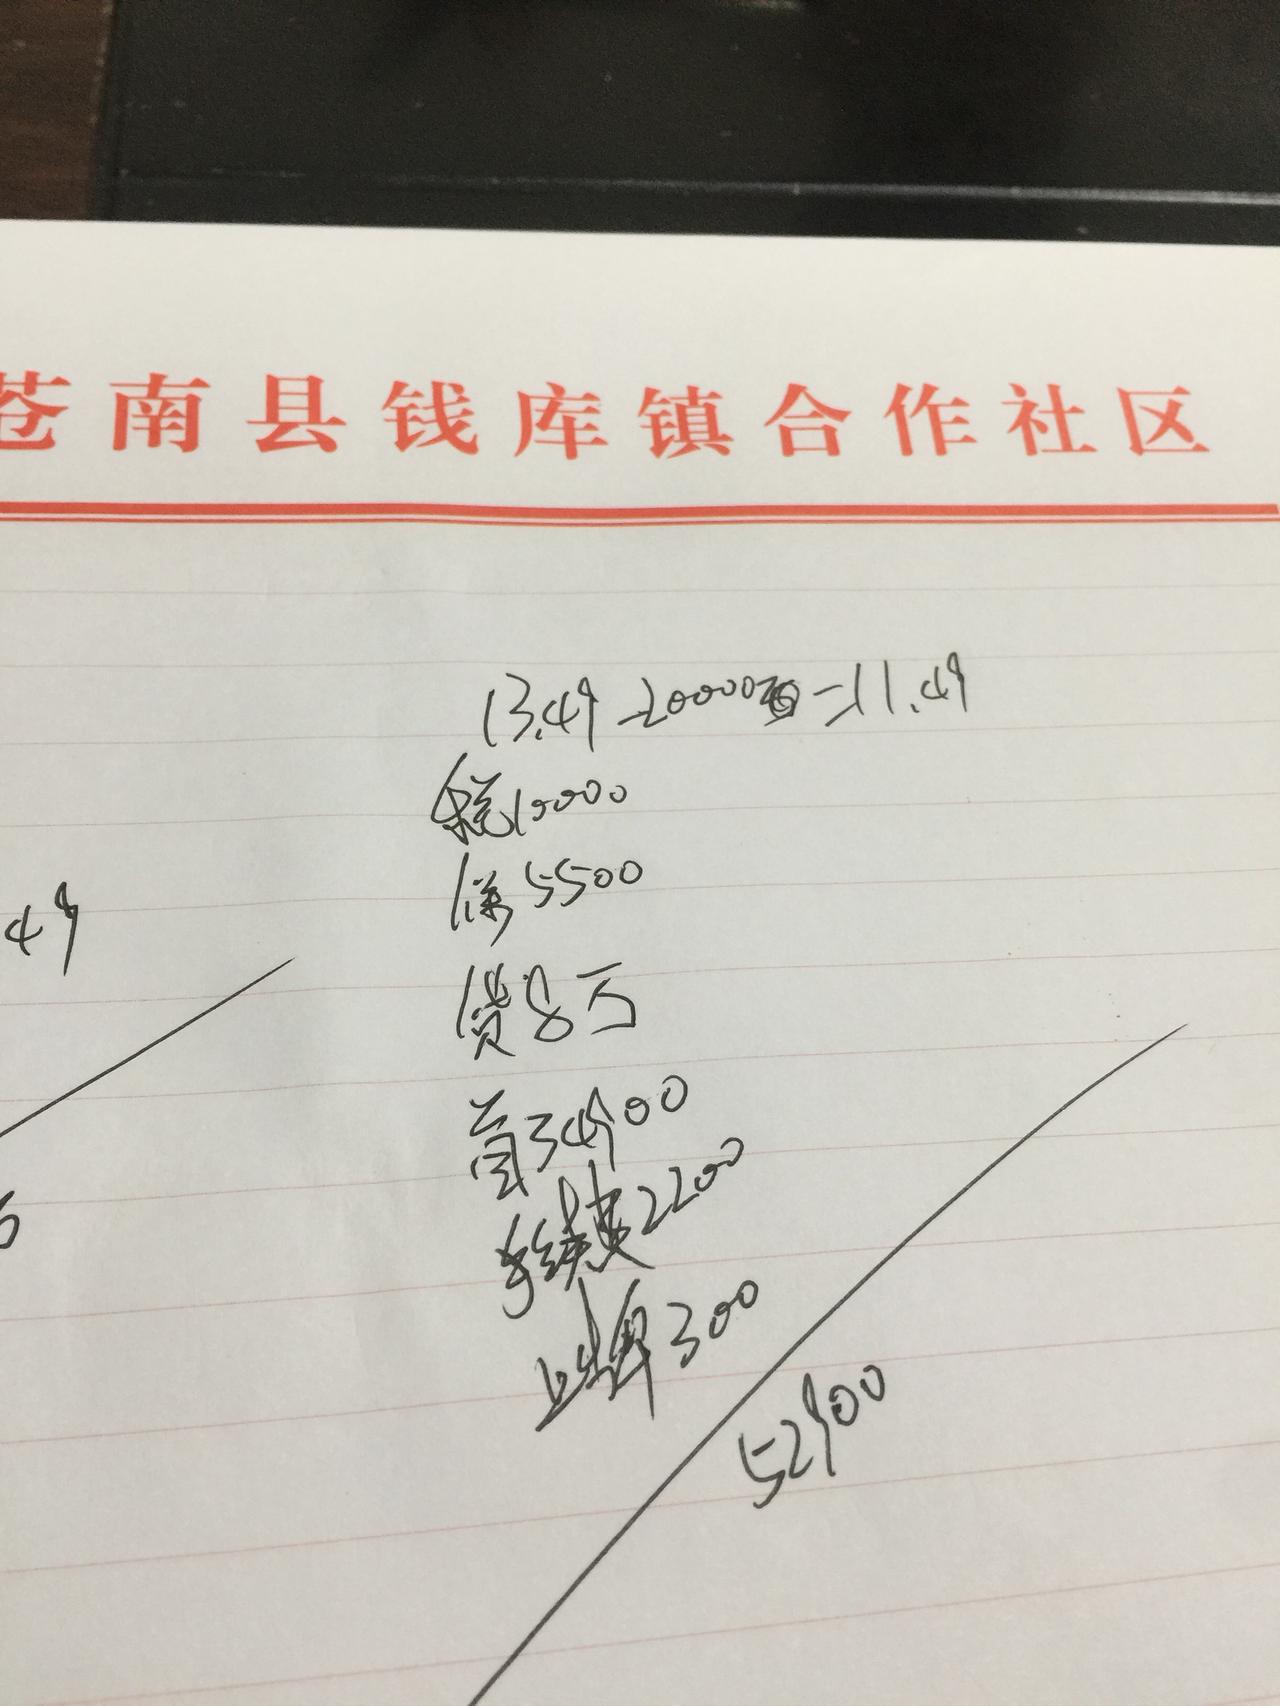 苍南县钱库镇合作社区
13.49-20000=11.49
税10000
保5500
贷8万
首34900
手续费2200
上牌300
52900
49